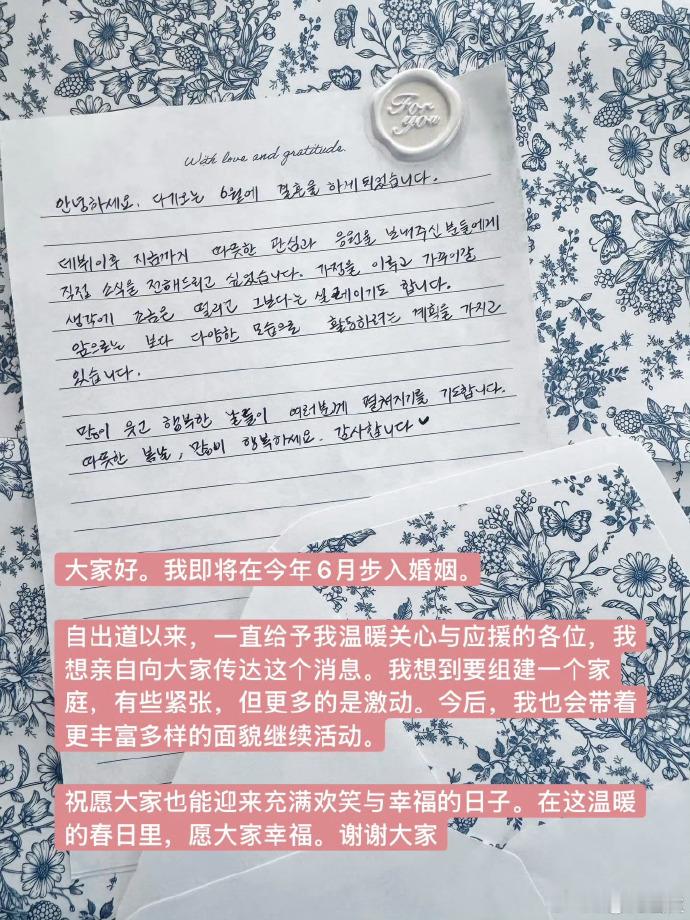 For
you
With love and gratitude.
안녕하세요. 다가오는 6월에 결혼을 하게 되었습니다.
데뷔이후 지금까지 따뜻한 관심과 응원을 보내주신 분들에게
직접 소식을 전해드리고 싶었습니다. 가정을 이루고 가꾸어갈
생각에 조금은 떨리고 그보다는 설레이기도 합니다.
앞으로는 보다 다양한 모습으로 활동하려는 계획을 가지고
있습니다.
많이 웃고 행복한 날들이 여러분께 펼쳐지기를 기도합니다.
따뜻한 봄날, 많이 행복하세요. 감사합니다♥
大家好。我即将在今年6月步入婚姻。
自出道以来，一直给予我温暖关心与应援的各位，我
想亲自向大家传达这个消息。我想到要组建一个家
庭，有些紧张，但更多的是激动。今后，我也会带着
更丰富多样的面貌继续活动。
祝愿大家也能迎来充满欢笑与幸福的日子。在这温暖
的春日里，愿大家幸福。谢谢大家